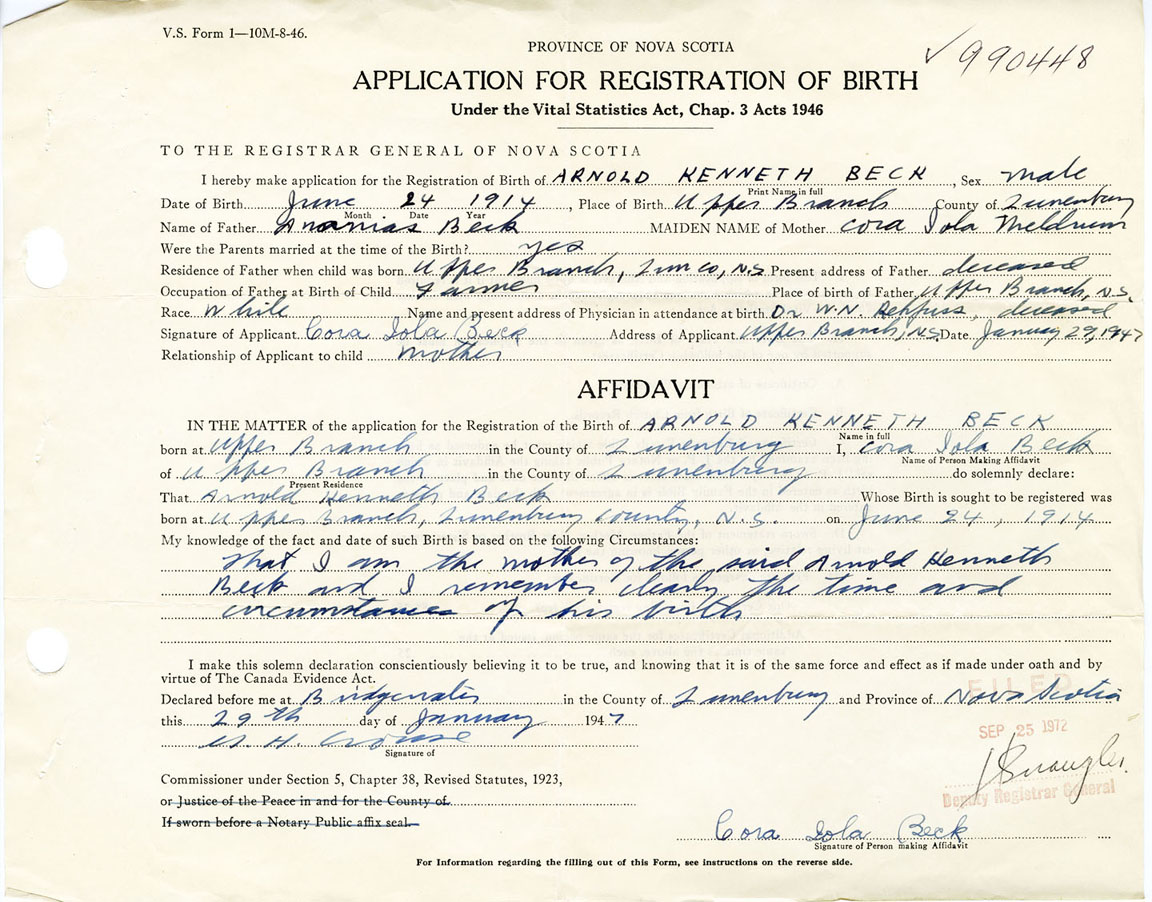 V.S. Form 1—10M-8-46.
PROVINCE OF NOVA SCOTIA
✓ 990448
APPLICATION FOR REGISTRATION OF BIRTH
Under the Vital Statistics Act, Chap. 3 Acts 1946
TO THE REGISTRAR GENERAL OF NOVA SCOTIA
I hereby make application for the Registration of Birth of ARNOLD KENNETH BECK, Sex male
Print Name in full
Date of Birth June 24 1914, Place of Birth Upper Branch County of Lunenburg
Month Date Year
Name of Father Ananias Beck MAIDEN NAME of Mother Cora Iola Meldrum
Were the Parents married at the time of the Birth? yes
Residence of Father when child was born Upper Branch, Lun Co, N.S. Present address of Father deceased
Occupation of Father at Birth of Child Farmer Place of birth of Father Upper Branch, N.S.
Race White Name and present address of Physician in attendance at birth Dr W.N. , deceased
Signature of Applicant Cora Iola Beck Address of Applicant Upper Branch, N.S. Date January 29, 1947
Relationship of Applicant to child mother
AFFIDAVIT
IN THE MATTER of the application for the Registration of the Birth of ARNOLD KENNETH BECK
Name in full
born at Upper Branch in the County of Lunenburg I, Cora Iola Beck
Name of Person Making Affidavit
of Upper Branch in the County of Lunenburg do solemnly declare:
Present Residence
That Arnold Kenneth Beck Whose Birth is sought to be registered was
born at Upper Branch, Lunenburg County, N.S. on June 24, 1914
My knowledge of the fact and date of such Birth is based on the following Circumstances:
That I am the mother of the said Arnold Kenneth
Beck and I remember clearly the time and
circumstances of his birth
I make this solemn declaration conscientiously believing it to be true, and knowing that it is of the same force and effect as if made under oath and by
virtue of The Canada Evidence Act.
FILED
Declared before me at Bridgewater in the County of Lunenburg and Province of Nova Scotia
this 29th day of January 1947
SEP 25 1972
Crouse
Signature of
Commissioner under Section 5, Chapter 38, Revised Statutes, 1923,
Deputy Registrar General
or Justice of the Peace in and for the County of
If sworn before a Notary Public affix seal.
Cora Iola Beck
Signature of Person making Affidavit
For Information regarding the filling out of this Form, see instructions on the reverse side.